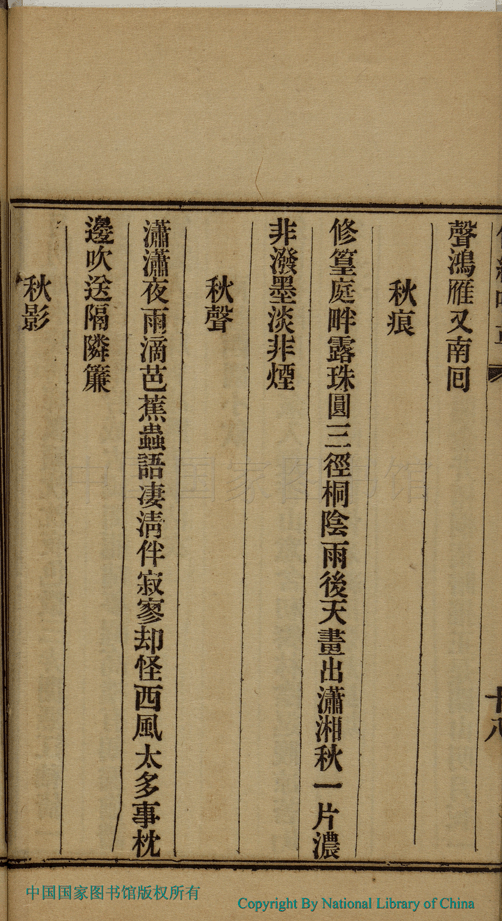 聲鴻雁又南回
秋痕
修篁庭畔露珠圓三徑桐陰雨後天畫出瀟湘秋一片濃
非潑墨淡非煙
秋聲
瀟瀟夜雨滴芭蕉蟲語凄清伴寂寥却怪西風太多事枕
邊吹送隔隣簾
秋影
中国国家图书馆版权所有
Copyright By National Library of China